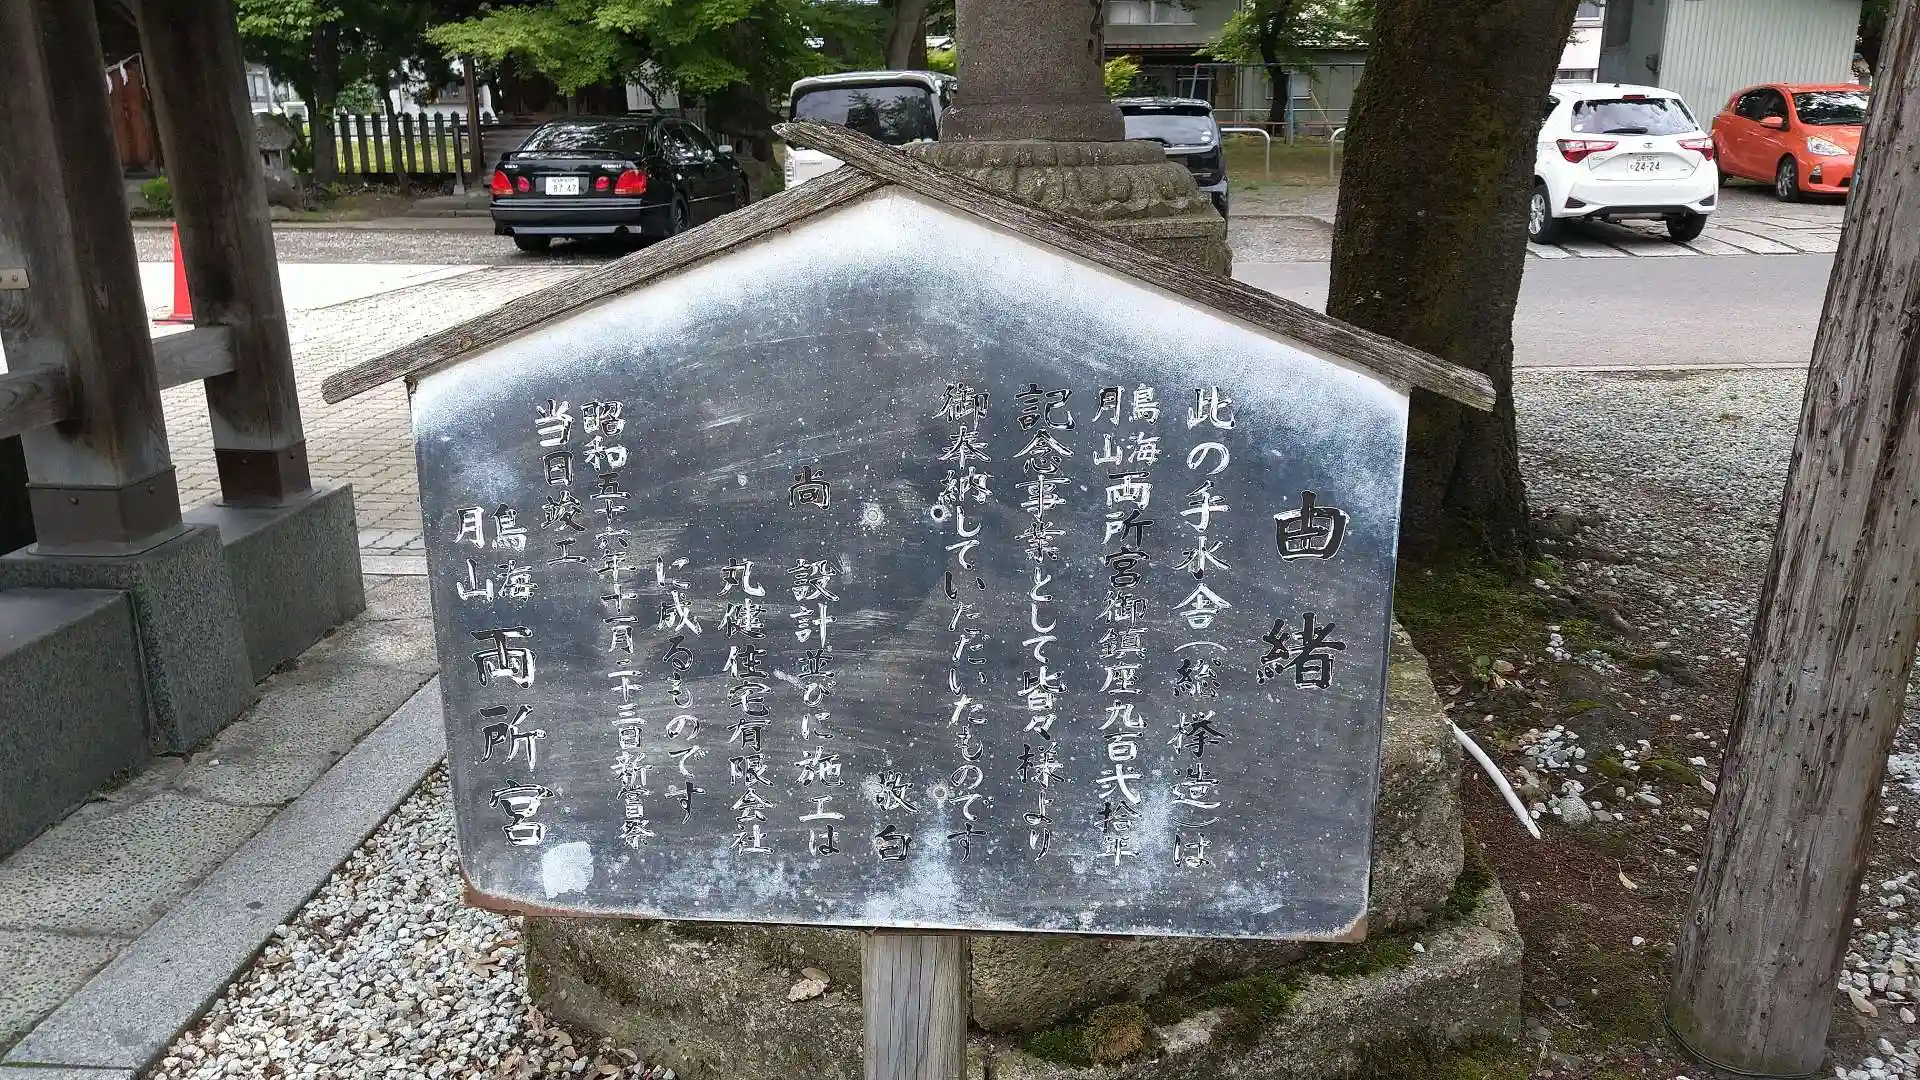 由緒
此の手水舎(総欅造)は
鳥海月山両所宮御鎮座九百弐拾年
記念事業として皆々様より
御奉納していただいたものです
敬白
尚 設計並びに施工は
丸健住宅有限会社
に成るものです
昭和五十六年十一月二十三日新嘗祭
当日竣工
鳥海月山両所宮
87-47
24-24